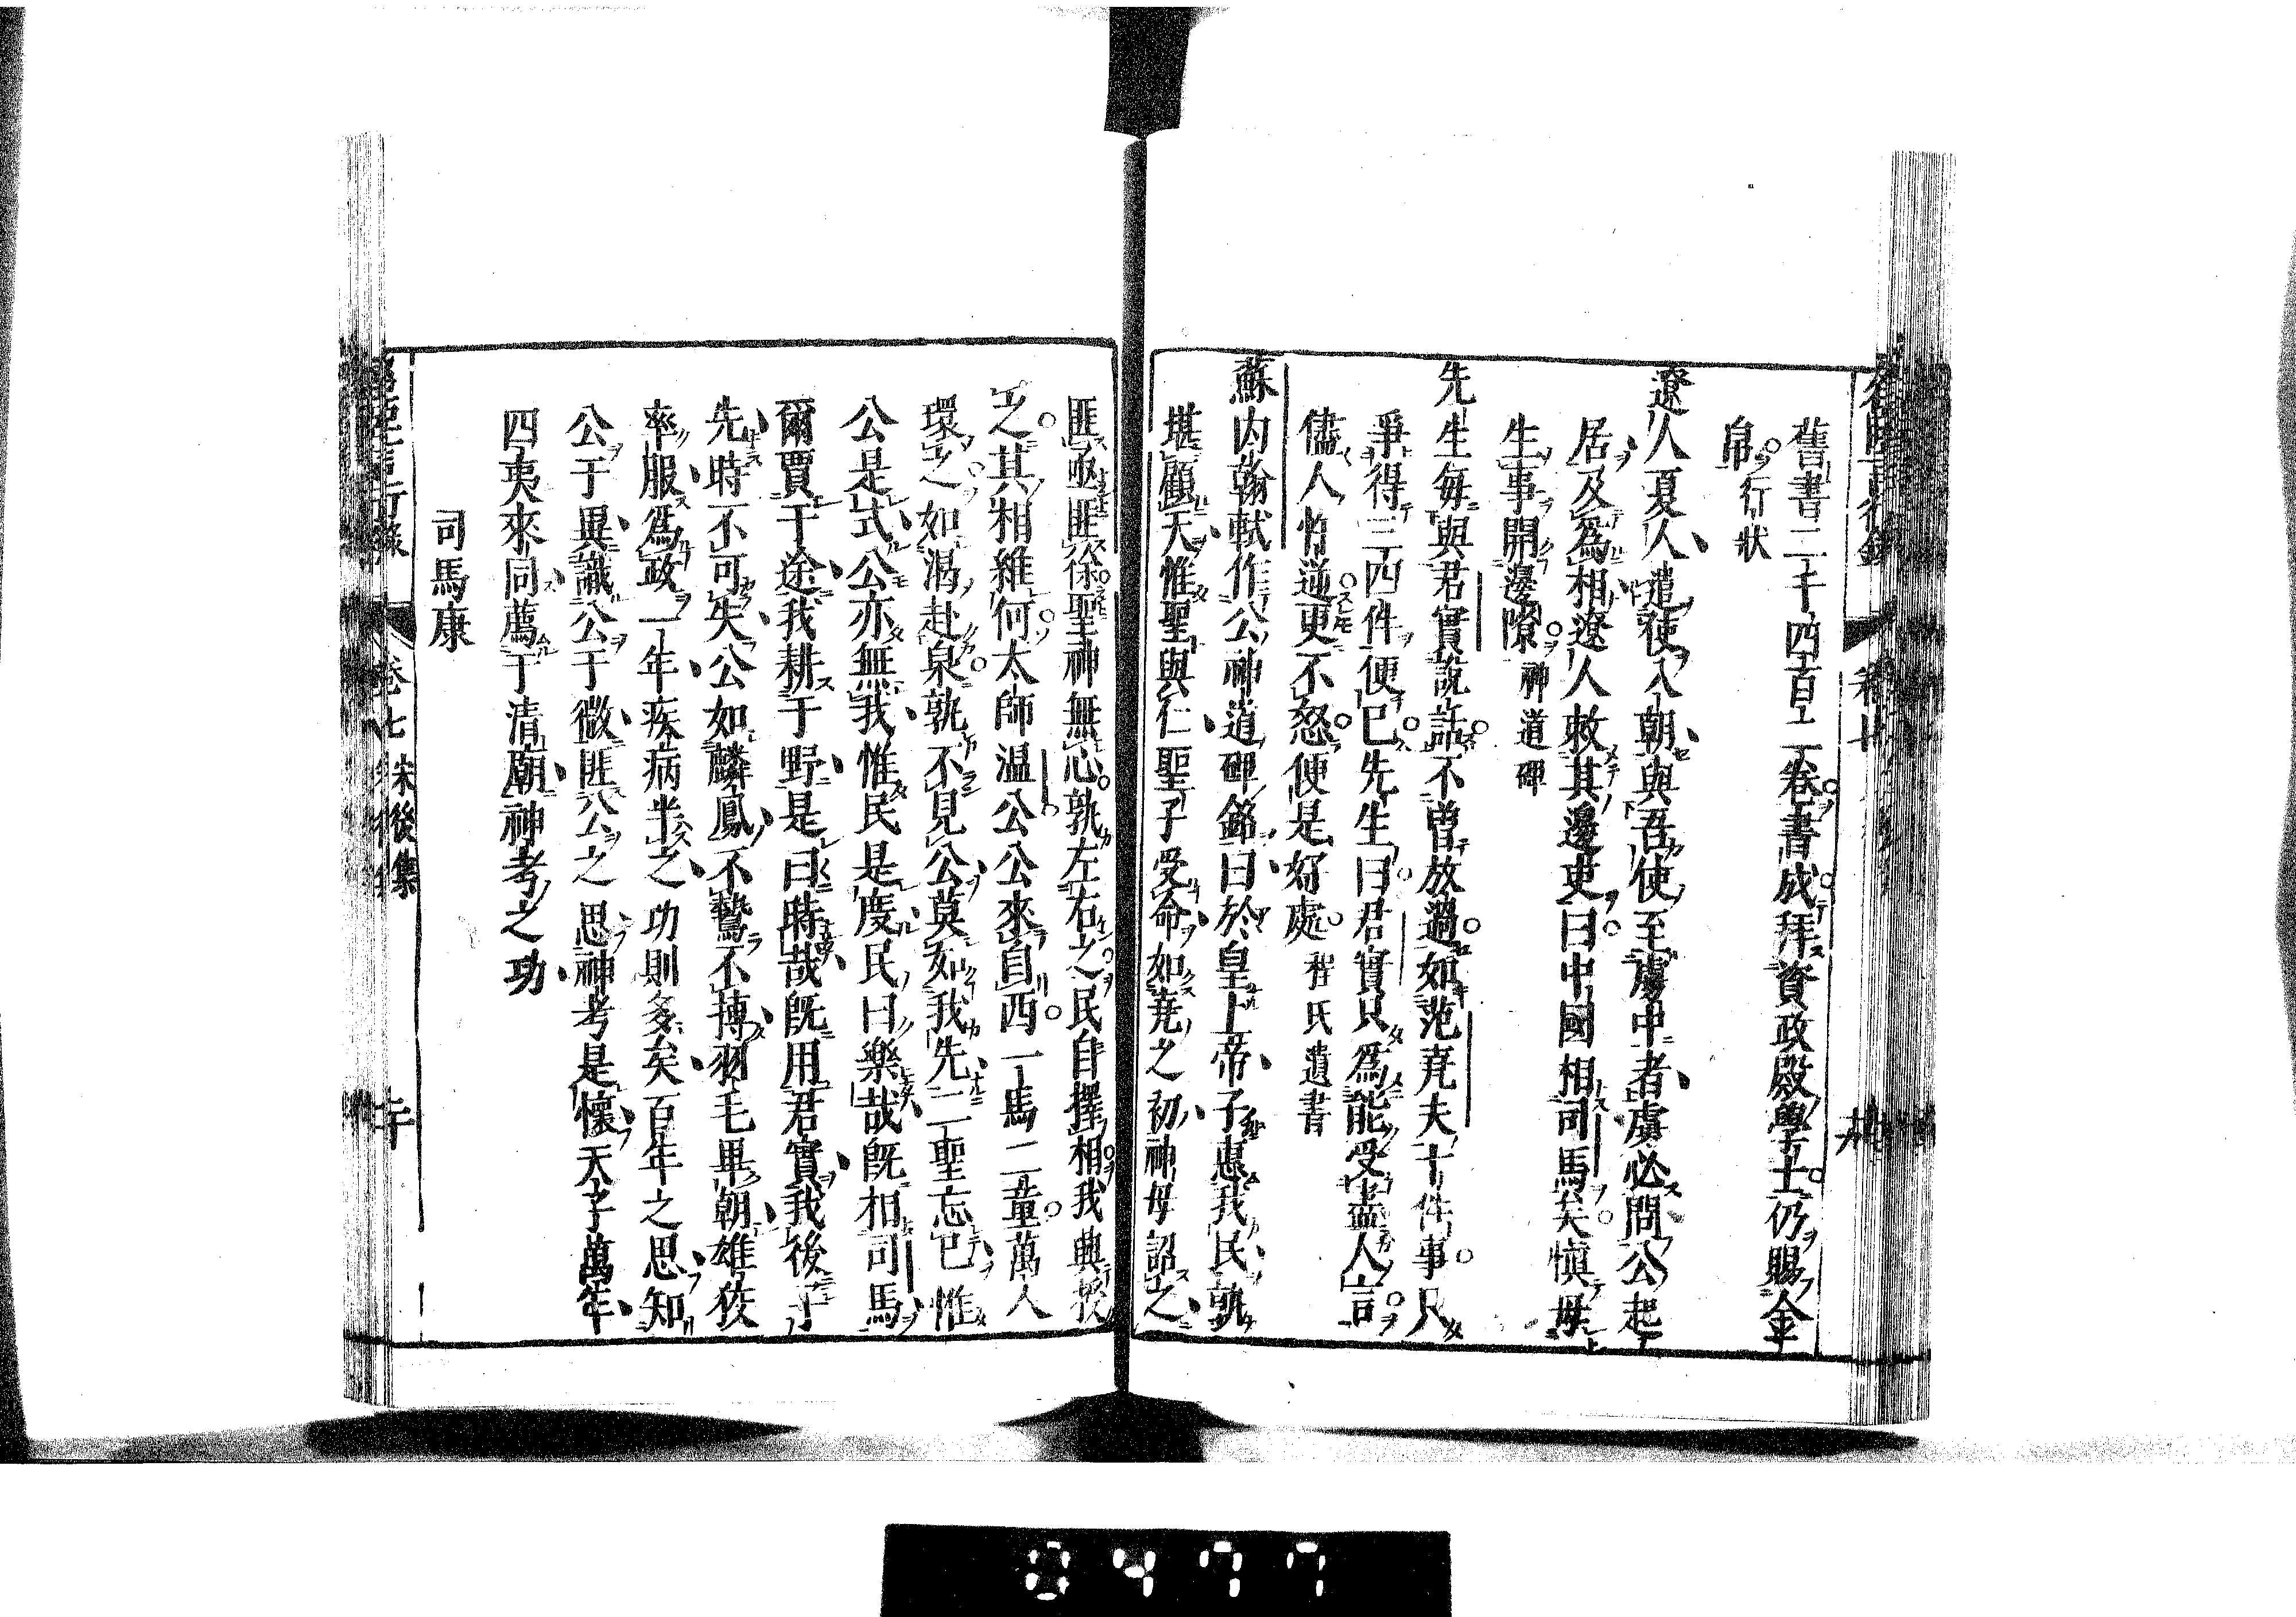 舊書二千四百二卷書成拜資政殿學士仍賜金
帛行狀
遼人夏人遣使入朝與吾使至虜中者虜必問公起
居及爲相遼人敕其邊吏曰中國相司馬矣愼毋
生事開邊隙神道碑
先生每與君實說話不曾放過如范堯夫十件事只
爭得三四件便已先生曰君實只爲能受盡人言
儘人忤逆更不怒便是好處程氏遺書
蘇內翰軾作公神道碑銘曰於皇上帝子惠我民孰
堪顧天惟聖與仁聖子受命如堯之初神母詔之
匪亟匪徐聖神無心孰左右之民自擇相我興授
之其相維何太師温公公來自西一馬二童萬人
環之如渴赴泉孰不見公莫如我先二聖忘已惟
公是式公亦無我惟民是度民曰樂哉旣相司馬
爾賈于途我耕于野是曰時哉旣用君實我後子
先時不可失公如麟鳳不鷙不搏羽毛畢朝雄狡
率服爲政一年疾病半之功則多矣百年之思知
公于異識公于微匪公之思神考是懷天子萬年
四夷來同薦于清廟神考之功
司馬康
卷七 宋後集